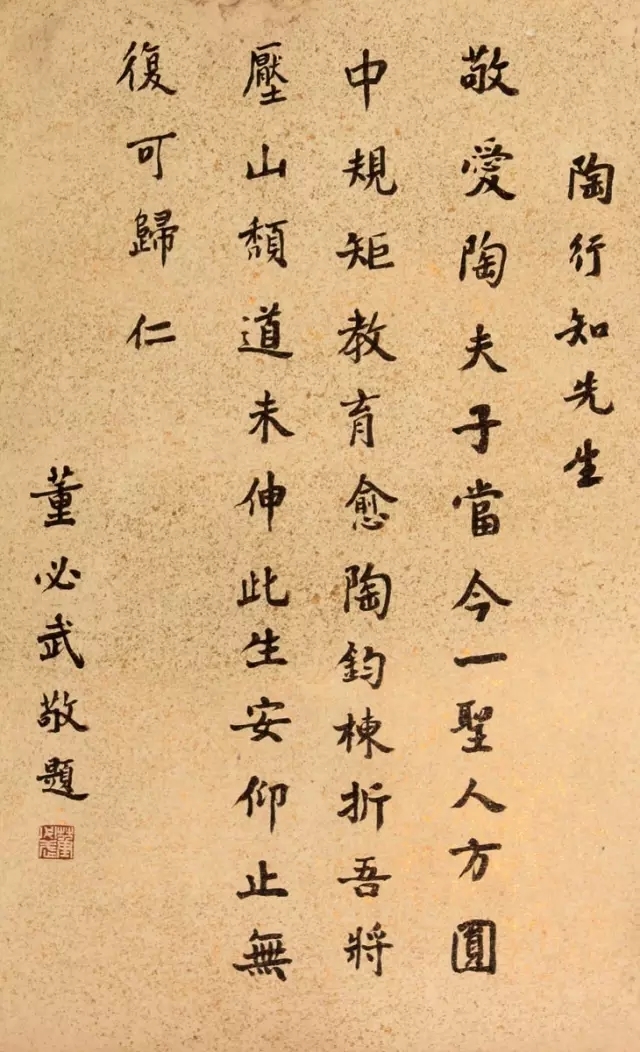 陶行知先生
敬愛陶夫子當今一聖人方圓
中規矩教育愈陶鈞棟折吾將
壓山頹道未伸此生安仰止無
復可歸仁
董必武敬題